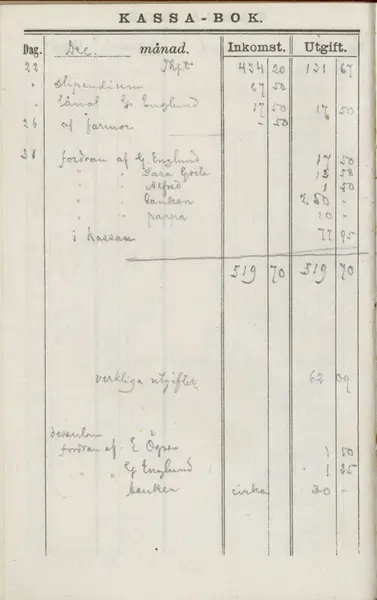 KASSA-BOK.
Dag. Dec. månad. Inkomst. Utgift.
22 Tkpt 434 20 131 67
" stipendium 67 50
" lånat G. Englund 17 50 17 50
26 af farmor - 50
31 fordran af G Englund 17 50
" " Sara Greta 13 58
" " Alfred 1 50
" " banken 250 -
" " pappa 10 -
i kassan 77 95
519 70 519 70
verkliga utgifter 62 09
dessutom
fordran af E 1 50
" " G Englund 1 25
banken cirka 30 -